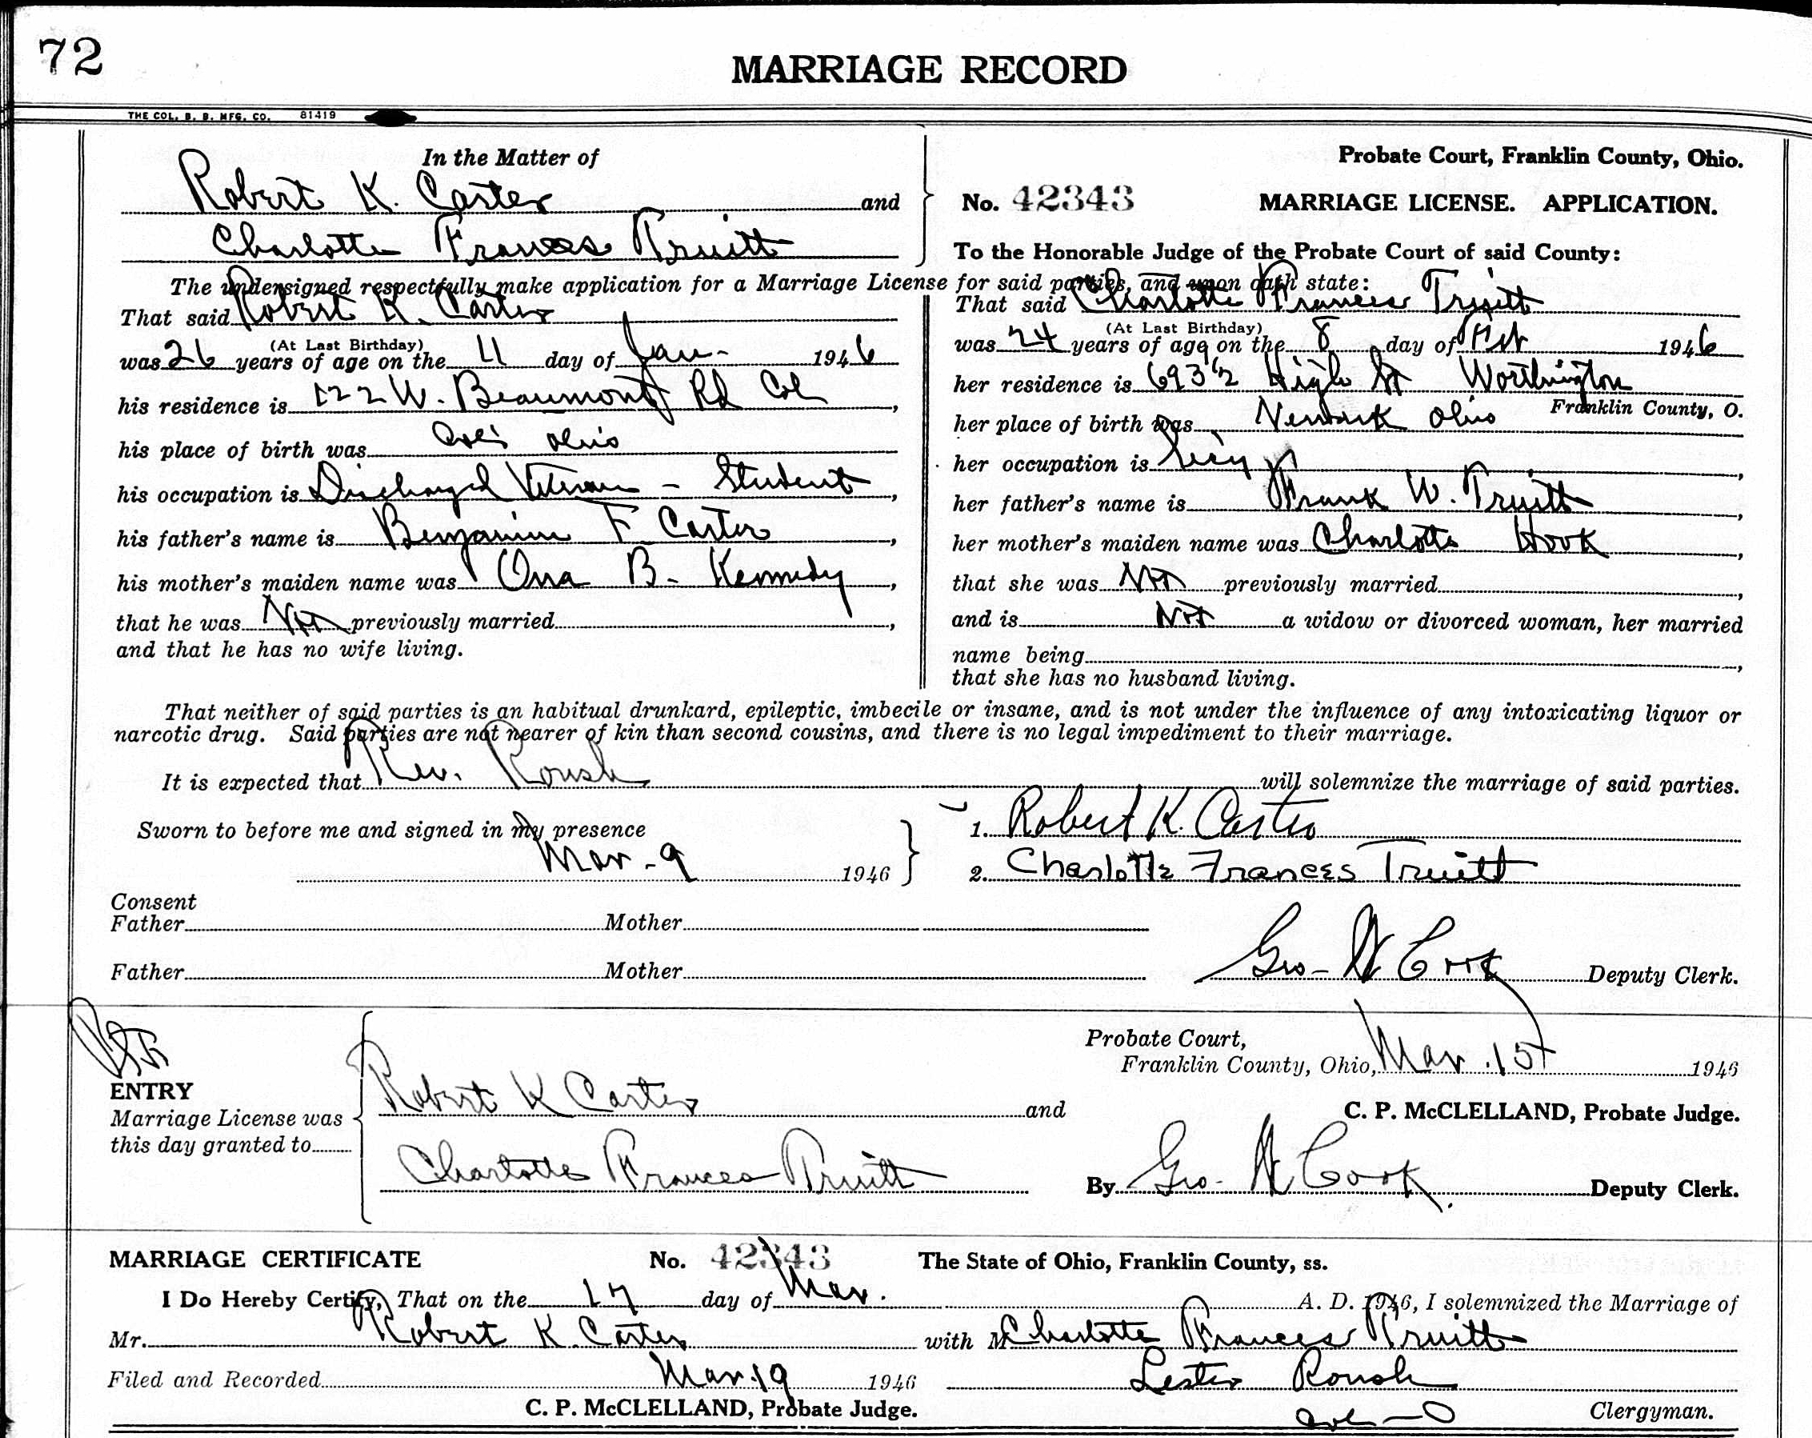 72
MARRIAGE RECORD
THE COL. B. B. MFG. CO. 81419
In the Matter of
Robert K. Carter and
Charlotte Frances Truitt
Probate Court, Franklin County, Ohio.
No. 42343 MARRIAGE LICENSE. APPLICATION.
To the Honorable Judge of the Probate Court of said County:
The undersigned respectfully make application for a Marriage License for said parties, and upon oath state:
That said Robert K. Carter
(At Last Birthday)
was 26 years of age on the 11 day of Jan- 1946
his residence is 122 W. Beaumont Rd Col,
his place of birth was Col's Ohio
his occupation is Discharged Veteran - Student,
his father's name is Benjamin F Carter,
his mother's maiden name was Ona B- Kennedy,
that he was Not previously married,
and that he has no wife living.
That said Charlotte Frances Truitt
(At Last Birthday)
was 24 years of age on the 8 day of 1946
her residence is 693½ High St Worthington
Franklin County, O.
her place of birth was Newark Ohio
her occupation is,
her father's name is Frank W. Truitt,
her mother's maiden name was Charlotte Hook,
that she was Not previously married,
and is Not a widow or divorced woman, her married
name being,
that she has no husband living.
That neither of said parties is an habitual drunkard, epileptic, imbecile or insane, and is not under the influence of any intoxicating liquor or
narcotic drug. Said parties are not nearer of kin than second cousins, and there is no legal impediment to their marriage.
It is expected that Rev. Roush will solemnize the marriage of said parties.
Sworn to before me and signed in my presence
Mar-9 1946
1. Robert K. Carter
2. Charlotte Frances Truitt
Consent
Father Mother
Father Mother
Geo- W Cook Deputy Clerk.
ENTRY
Marriage License was
this day granted to
Robert K Carter and
Charlotte Frances Truitt
Probate Court,
Franklin County, Ohio, Mar. 15 1946
C. P. McCLELLAND, Probate Judge.
By Geo. W Cook. Deputy Clerk.
MARRIAGE CERTIFICATE No. 42343 The State of Ohio, Franklin County, ss.
I Do Hereby Certify, That on the 17 day of Mar. A. D. 1946, I solemnized the Marriage of
Mr. Robert K. Carter with M Charlotte Frances Truitt
Filed and Recorded Mar. 19 1946 Lester Roush
C. P. McCLELLAND, Probate Judge. Clergyman.